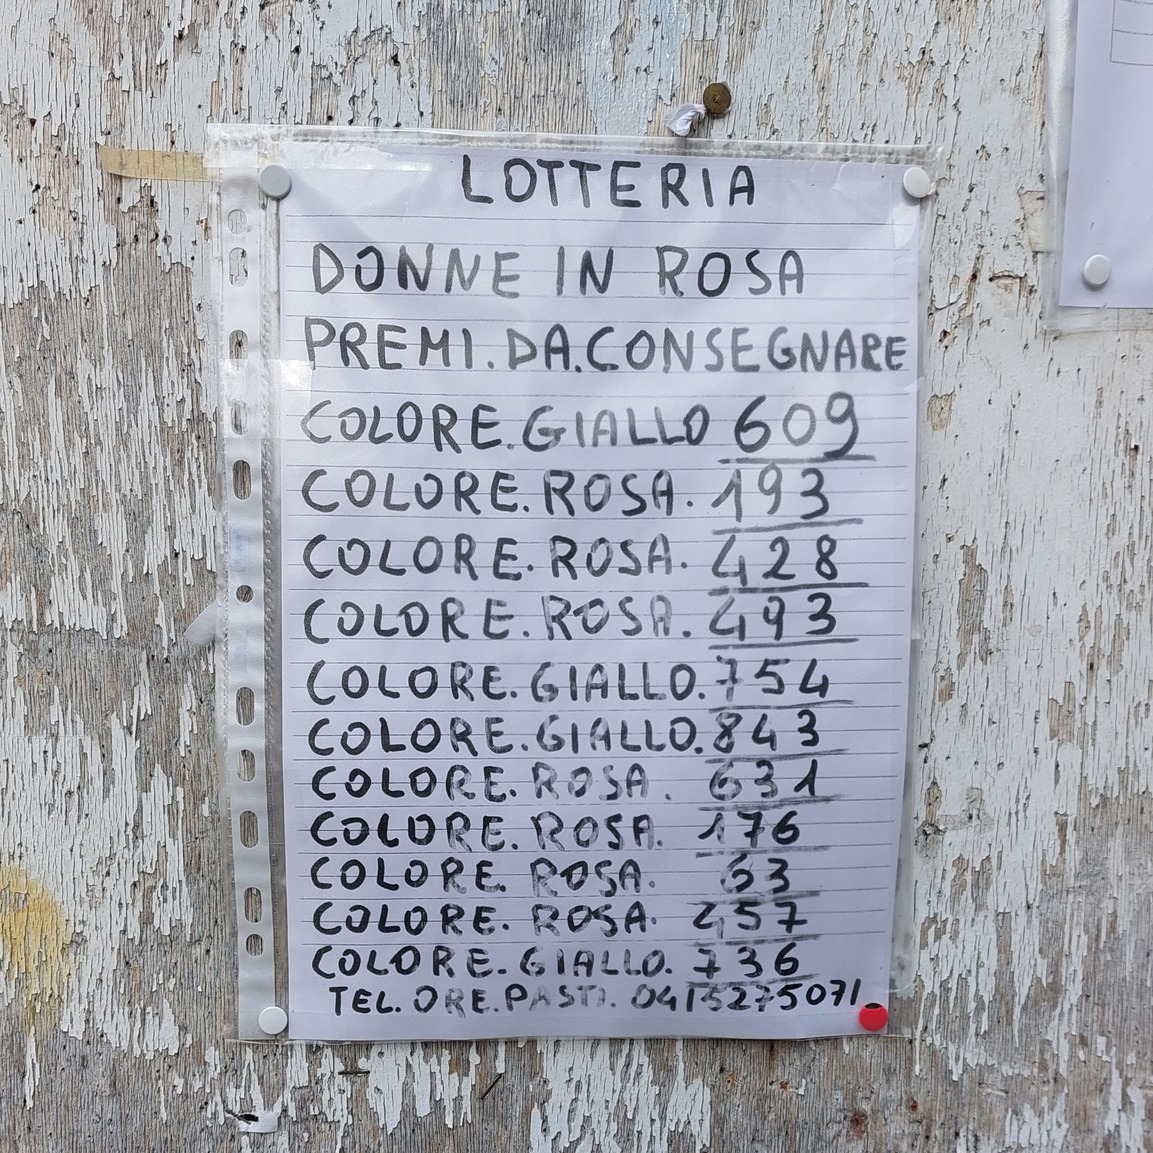 LOTTERIA
DONNE IN ROSA
PREMI.DA.CONSEGNARE
COLORE.GIALLO 609
COLORE.ROSA. 193
COLORE.ROSA. 428
COLORE.ROSA. 493
COLORE.GIALLO.754
COLORE.GIALLO.843
COLORE.ROSA. 631
COLORE.ROSA. 176
COLORE.ROSA. 63
COLORE.ROSA. 457
COLORE.GIALLO. 736
TEL.ORE.PASTI. 0415275071.